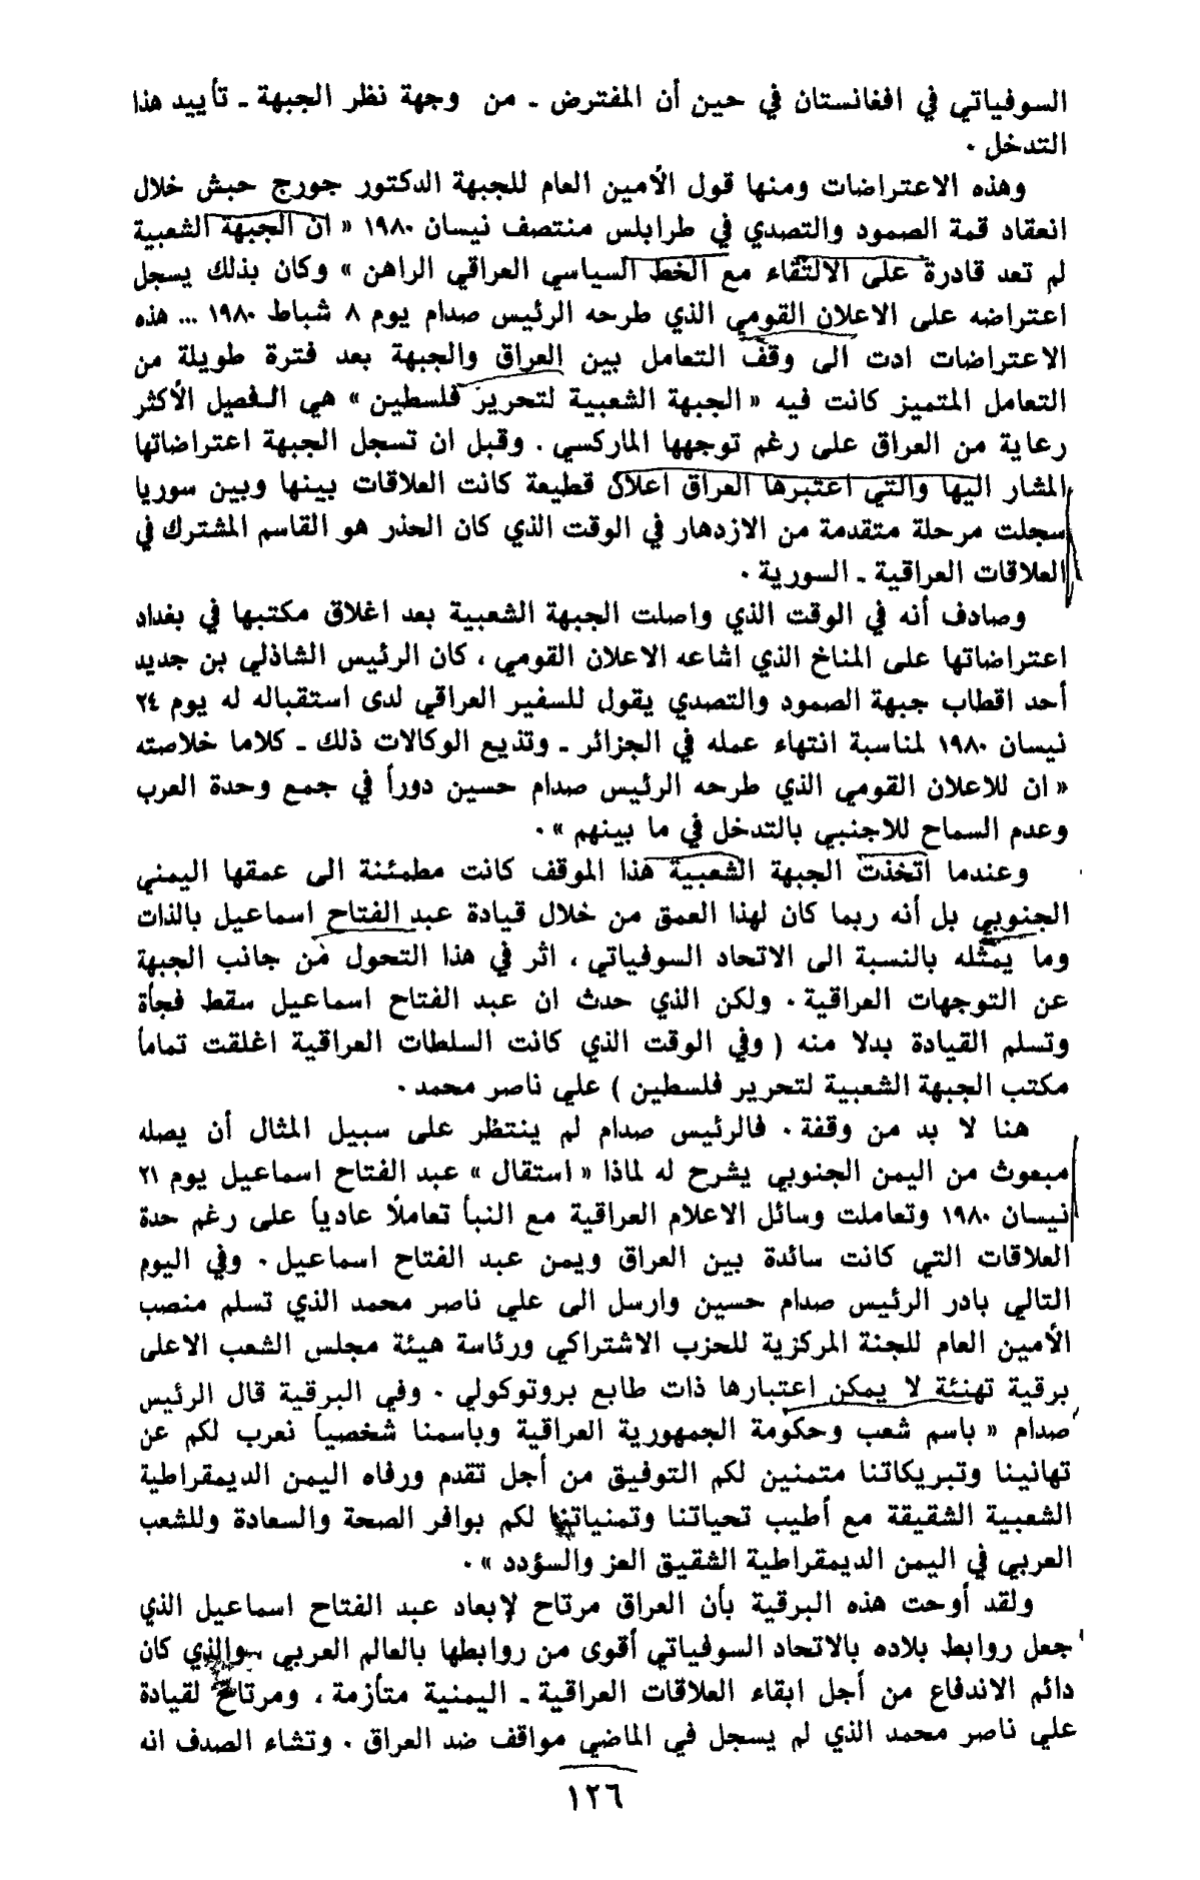 السوفياتي في افغانستان في حين أن المفترض ـ من وجهة نظر الجبهة ـ تأييد هذا
التدخل .
وهذه الاعتراضات ومنها قول الأمين العام للجبهة الدكتور جورج حبش خلال
انعقاد قمة الصمود والتصدي في طرابلس منتصف نيسان ١٩٨٠ « ان الجبهة الشعبية
لم تعد قادرة على الالتقاء مع الخط السياسي العراقي الراهن » وكان بذلك يسجل
اعتراضه على الاعلان القومي الذي طرحه الرئيس صدام يوم ٨ شباط ١٩٨٠ ... هذه
الاعتراضات ادت الى وقف التعامل بين العراق والجبهة بعد فترة طويلة من
التعامل المتميز كانت فيه « الجبهة الشعبية لتحرير فلسطين » هي الفصيل الأكثر
رعاية من العراق على رغم توجهها الماركسي . وقبل ان تسجل الجبهة اعتراضاتها
المشار اليها والتي اعتبرها العراق اعلان قطيعة كانت العلاقات بينها وبين سوريا
سجلت مرحلة متقدمة من الازدهار في الوقت الذي كان الحذر هو القاسم المشترك في
العلاقات العراقية ـ السورية .
وصادف أنه في الوقت الذي واصلت الجبهة الشعبية بعد اغلاق مكتبها في بغداد
اعتراضاتها على المناخ الذي اشاعه الاعلان القومي ، كان الرئيس الشاذلي بن جديد
أحد اقطاب جبهة الصمود والتصدي يقول للسفير العراقي لدى استقباله له يوم ٢٤
نيسان ١٩٨٠ لمناسبة انتهاء عمله في الجزائر ـ وتذيع الوكالات ذلك ـ كلاما خلاصته
« ان للاعلان القومي الذي طرحه الرئيس صدام حسين دوراً في جمع وحدة العرب
وعدم السماح للاجنبي بالتدخل في ما بينهم » .
وعندما اتخذت الجبهة الشعبية هذا الموقف كانت مطمئنة الى عمقها اليمني
الجنوبي بل أنه ربما كان لهذا العمق من خلال قيادة عبد الفتاح اسماعيل بالذات
وما يمثله بالنسبة الى الاتحاد السوفياتي ، اثر في هذا التحول من جانب الجبهة
عن التوجهات العراقية . ولكن الذي حدث ان عبد الفتاح اسماعيل سقط فجأة
وتسلم القيادة بدلا منه ( وفي الوقت الذي كانت السلطات العراقية اغلقت تماماً
مكتب الجبهة الشعبية لتحرير فلسطين ) علي ناصر محمد .
هنا لا بد من وقفة . فالرئيس صدام لم ينتظر على سبيل المثال أن يصله
مبعوث من اليمن الجنوبي يشرح له لماذا « استقال » عبد الفتاح اسماعيل يوم ٢١
نيسان ١٩٨٠ وتعاملت وسائل الاعلام العراقية مع النبأ تعاملًا عادياً على رغم حدة
العلاقات التي كانت سائدة بين العراق ويمن عبد الفتاح اسماعيل . وفي اليوم
التالي بادر الرئيس صدام حسين وارسل الى علي ناصر محمد الذي تسلم منصب
الأمين العام للجنة المركزية للحزب الاشتراكي ورئاسة هيئة مجلس الشعب الاعلى
برقية تهنئة لا يمكن اعتبارها ذات طابع بروتوكولي . وفي البرقية قال الرئيس
صدام « باسم شعب وحكومة الجمهورية العراقية وباسمنا شخصياً نعرب لكم عن
تهانينا وتبريكاتنا متمنين لكم التوفيق من أجل تقدم ورفاه اليمن الديمقراطية
الشعبية الشقيقة مع أطيب تحياتنا وتمنياتنا لكم بوافر الصحة والسعادة وللشعب
العربي في اليمن الديمقراطية الشقيق العز والسؤدد » .
ولقد أوحت هذه البرقية بأن العراق مرتاح لإبعاد عبد الفتاح اسماعيل الذي
جعل روابط بلاده بالاتحاد السوفياتي أقوى من روابطها بالعالم العربي ، والذي كان
دائم الاندفاع من أجل ابقاء العلاقات العراقية ـ اليمنية متأزمة ، ومرتاح لقيادة
علي ناصر محمد الذي لم يسجل في الماضي مواقف ضد العراق . وتشاء الصدف انه
١٢٦